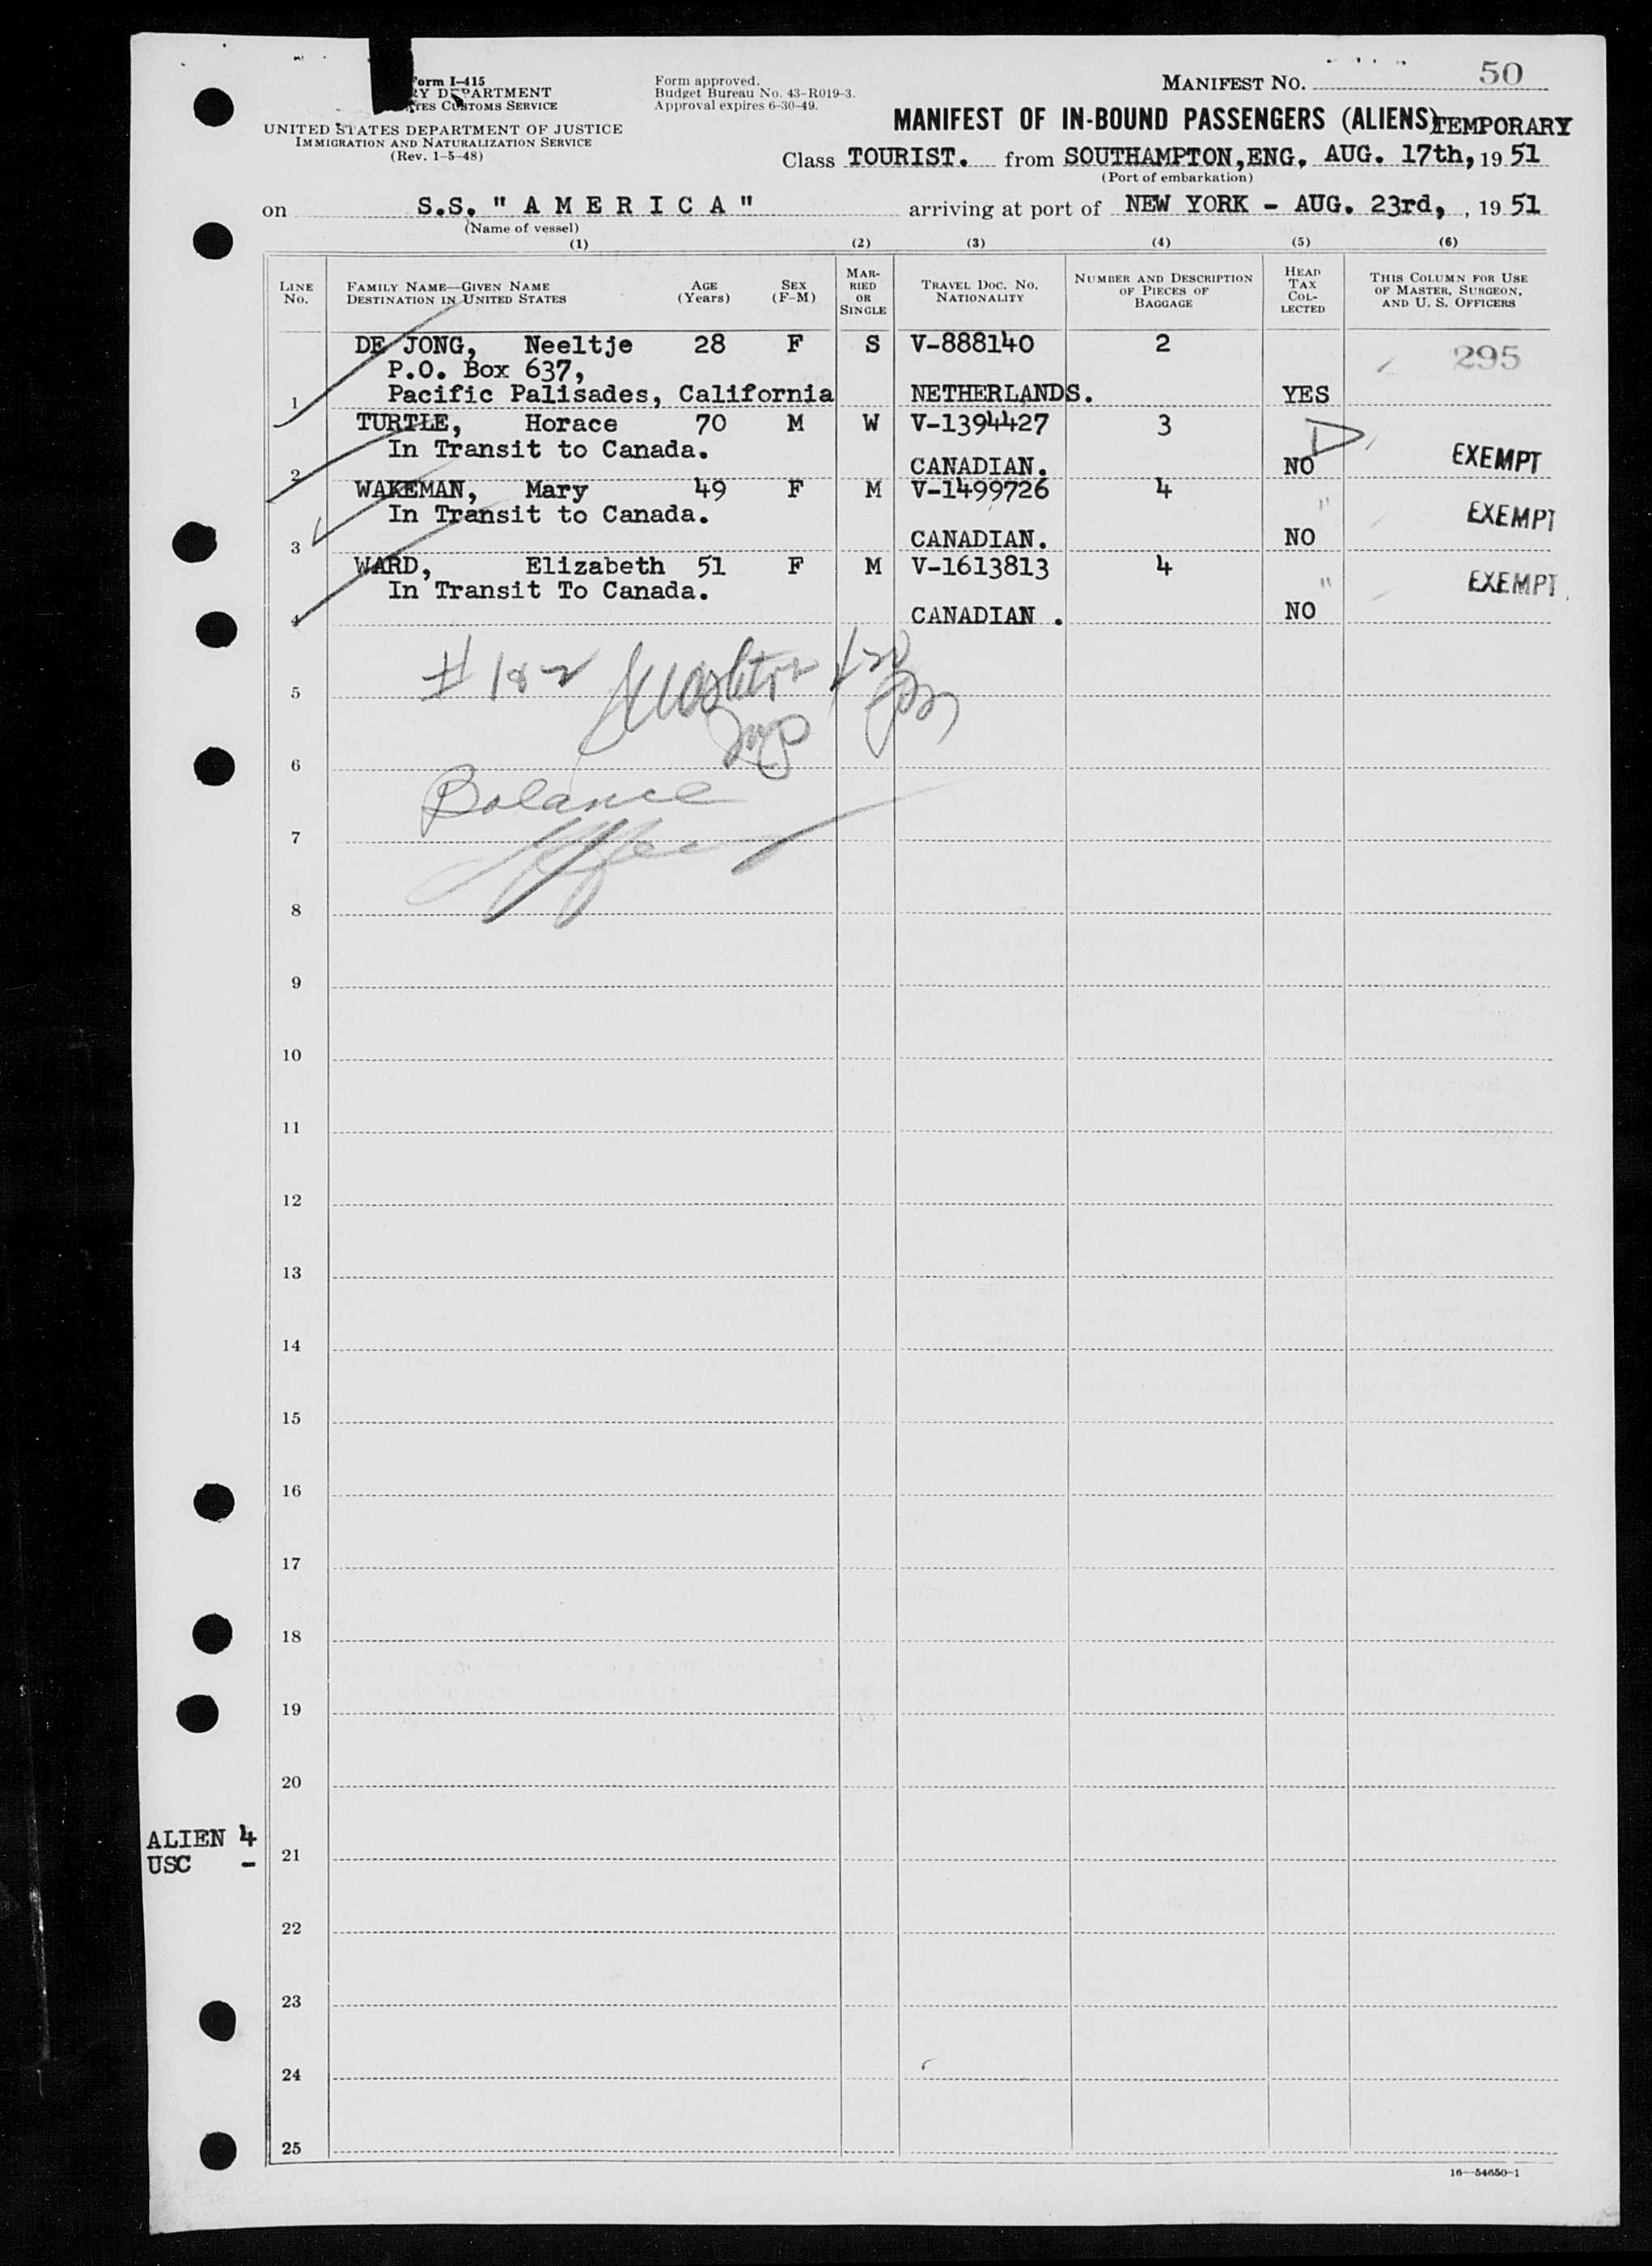 MANIFEST NO. 50
Form I-415
TREASURY DEPARTMENT
UNITED STATES CUSTOMS SERVICE
UNITED STATES DEPARTMENT OF JUSTICE
IMMIGRATION AND NATURALIZATION SERVICE
(Rev. 1-5-48)
Form approved.
Budget Bureau No. 43-R019-3.
Approval expires 6-30-49.
MANIFEST OF IN-BOUND PASSENGERS (ALIENS) TEMPORARY
Class TOURIST. from SOUTHAMPTON,ENG, AUG. 17th, 1951
(Port of embarkation)
on S.S. " A M E R I C A " arriving at port of NEW YORK - AUG. 23rd, , 19 51
(Name of vessel)
(1) (2) (3) (4) (5) (6)
LINE NO. FAMILY NAME—GIVEN NAME DESTINATION IN UNITED STATES AGE (Years) SEX (F-M) MARRIED OR SINGLE TRAVEL DOC. NO. NATIONALITY NUMBER AND DESCRIPTION OF PIECES OF BAGGAGE HEAD TAX COLLECTED THIS COLUMN FOR USE OF MASTER, SURGEON, AND U. S. OFFICERS
DE JONG, Neeltje 28 F S V-888140 2 295
P.O. Box 637,
1 Pacific Palisades, California NETHERLANDS. YES
TURTLE, Horace 70 M W V-1394427 3
In Transit to Canada.
2 CANADIAN. NO EXEMPT
WAKEMAN, Mary 49 F M V-1499726 4
In Transit to Canada. " EXEMPT
3 CANADIAN. NO
WARD, Elizabeth 51 F M V-1613813 4
In Transit To Canada. " EXEMPT
4 CANADIAN . NO
# 182
5
6
Balance
7
8
9
10
11
12
13
14
15
16
17
18
19
20
ALIEN 4
USC -
21
22
23
24
25
16—54650-1